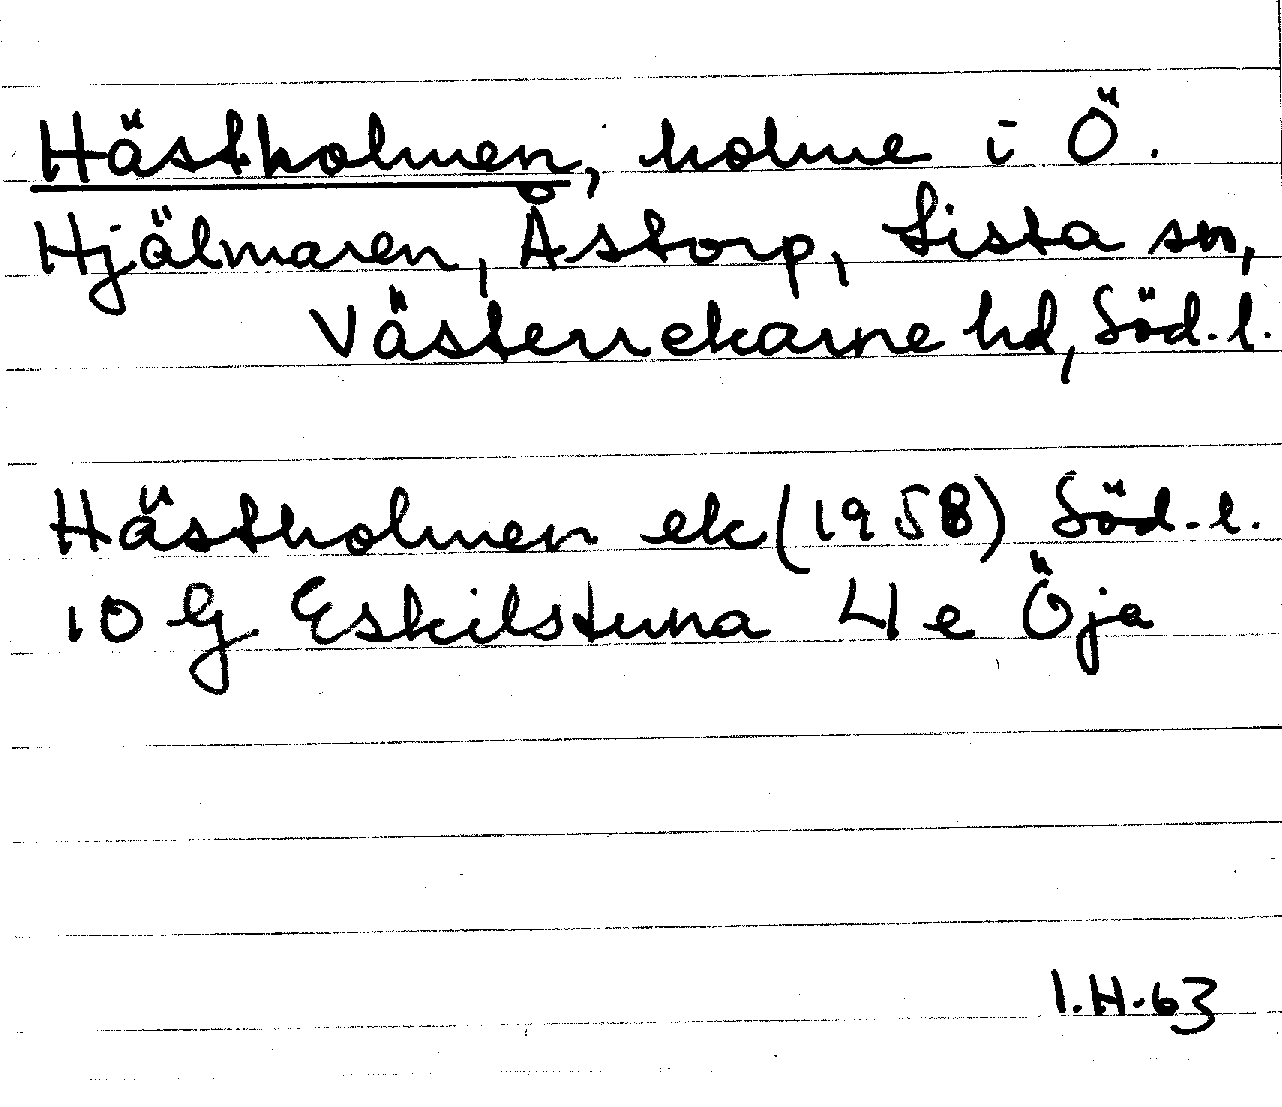 Hästholmen, holme i Ö.
Hjälmaren, Åstorp, Lista sn,
Västerrekarne hd, Söd.l.
Hästholmen ek (1958) Söd.l.
10 G Eskilstuna 4 e Öja
I.H.63